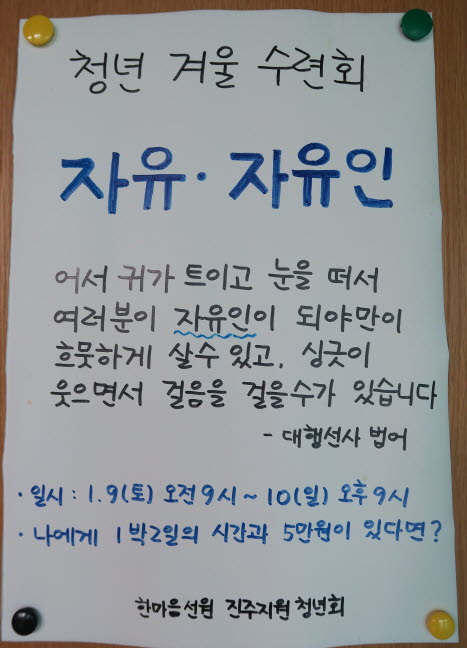 청년 겨울 수련회
자유· 자유인
어서 귀가 트이고 눈을 떠서
여러분이 자유인이 되야만이
흐뭇하게 살수 있고, 싱긋이
웃으면서 걸음을 걸을수가 있습니다
- 대행선사 법어
· 일시 : 1.9(토) 오전9시~10(일) 오후9시
· 나에게 1박2일의 시간과 5만원이 있다면?
한마음선원 진주지원 청년회